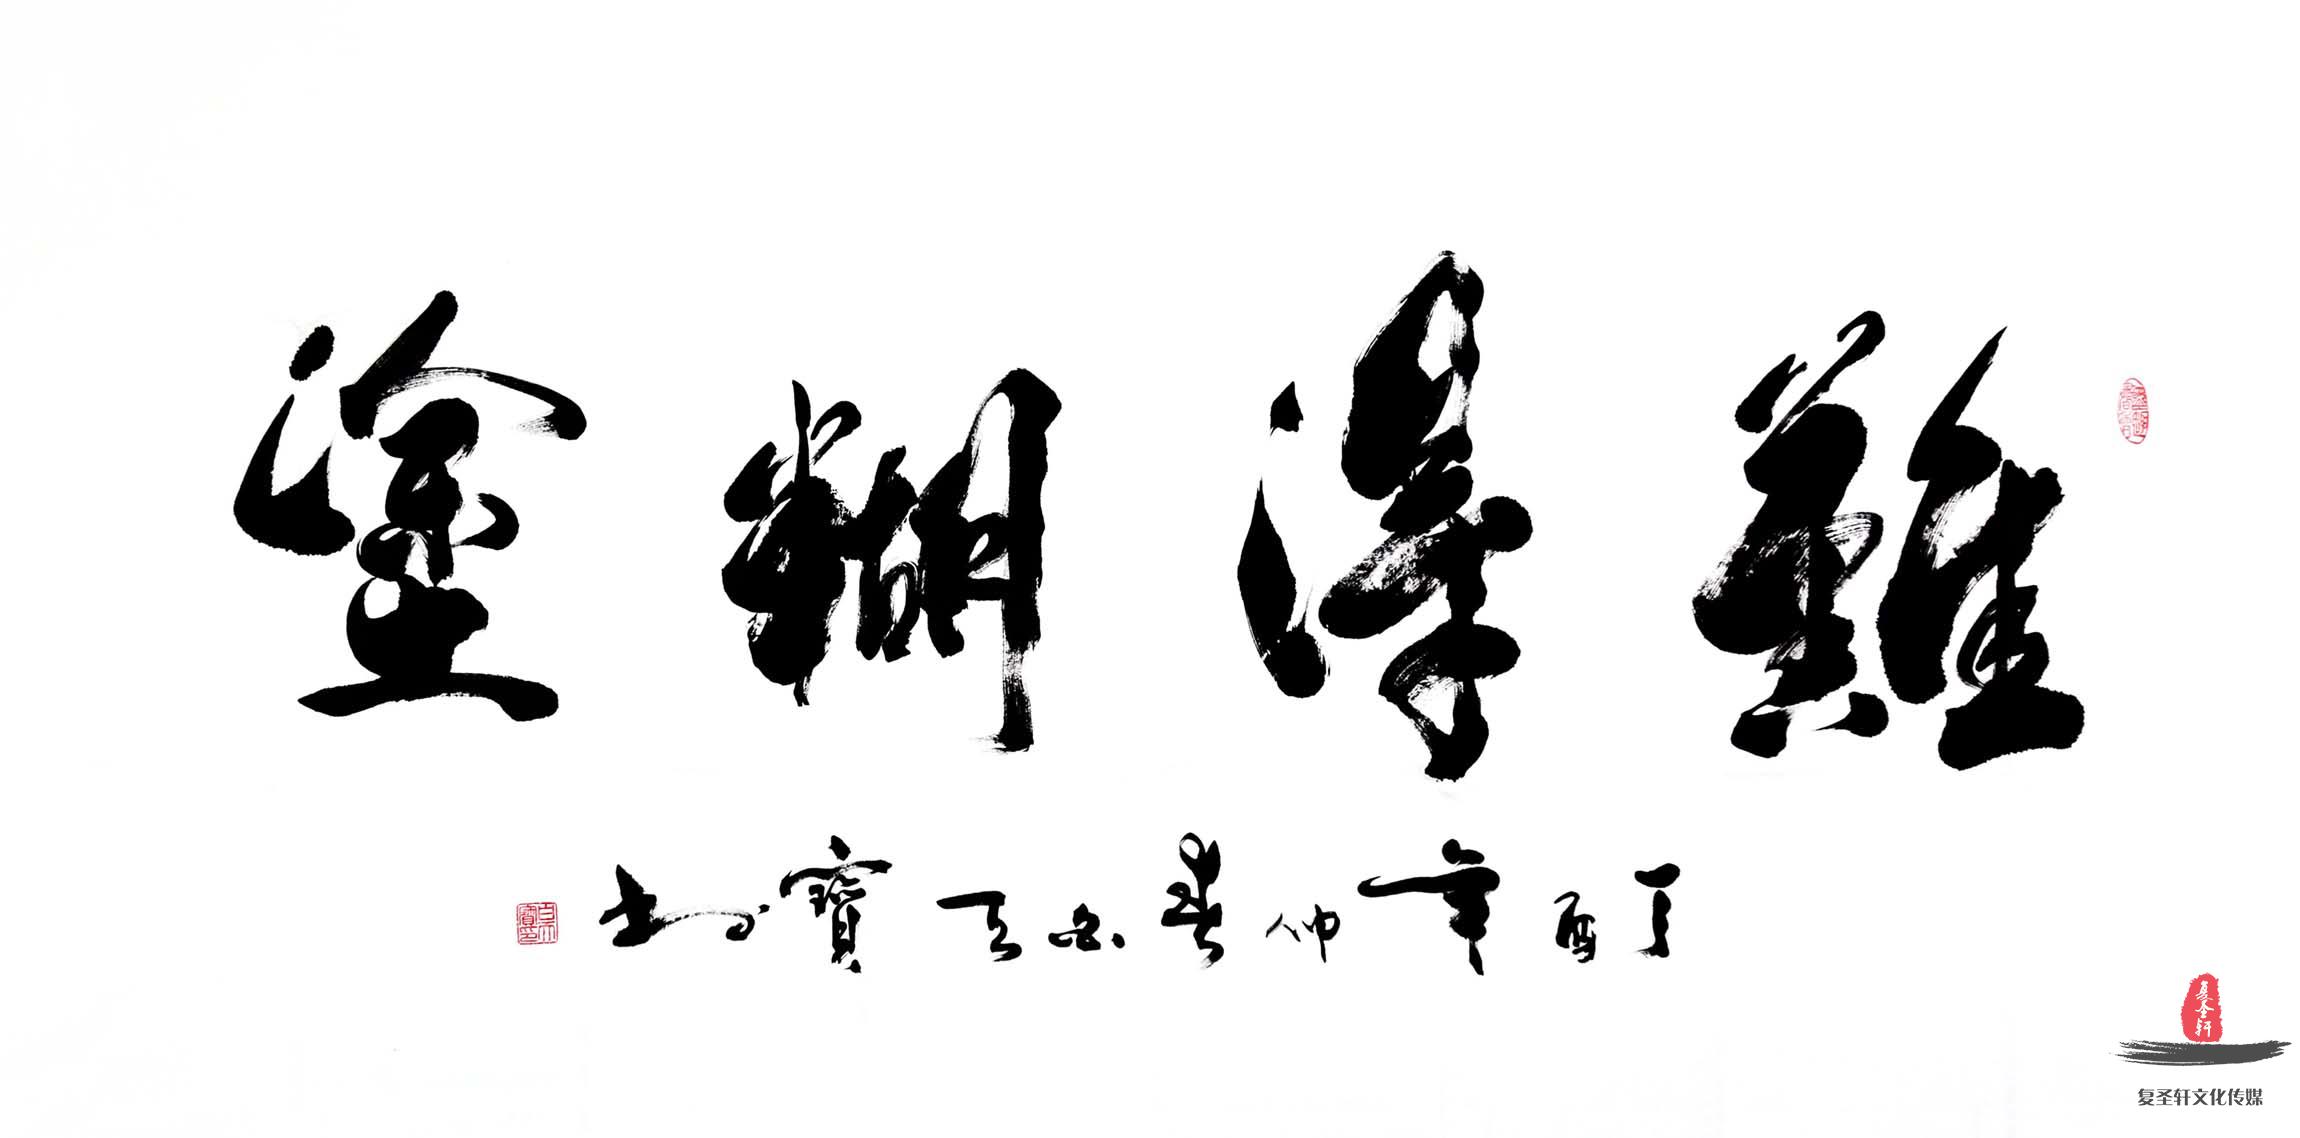 難得糊塗
丁酉年仲春白天寶書
復圣轩
复圣轩文化传媒